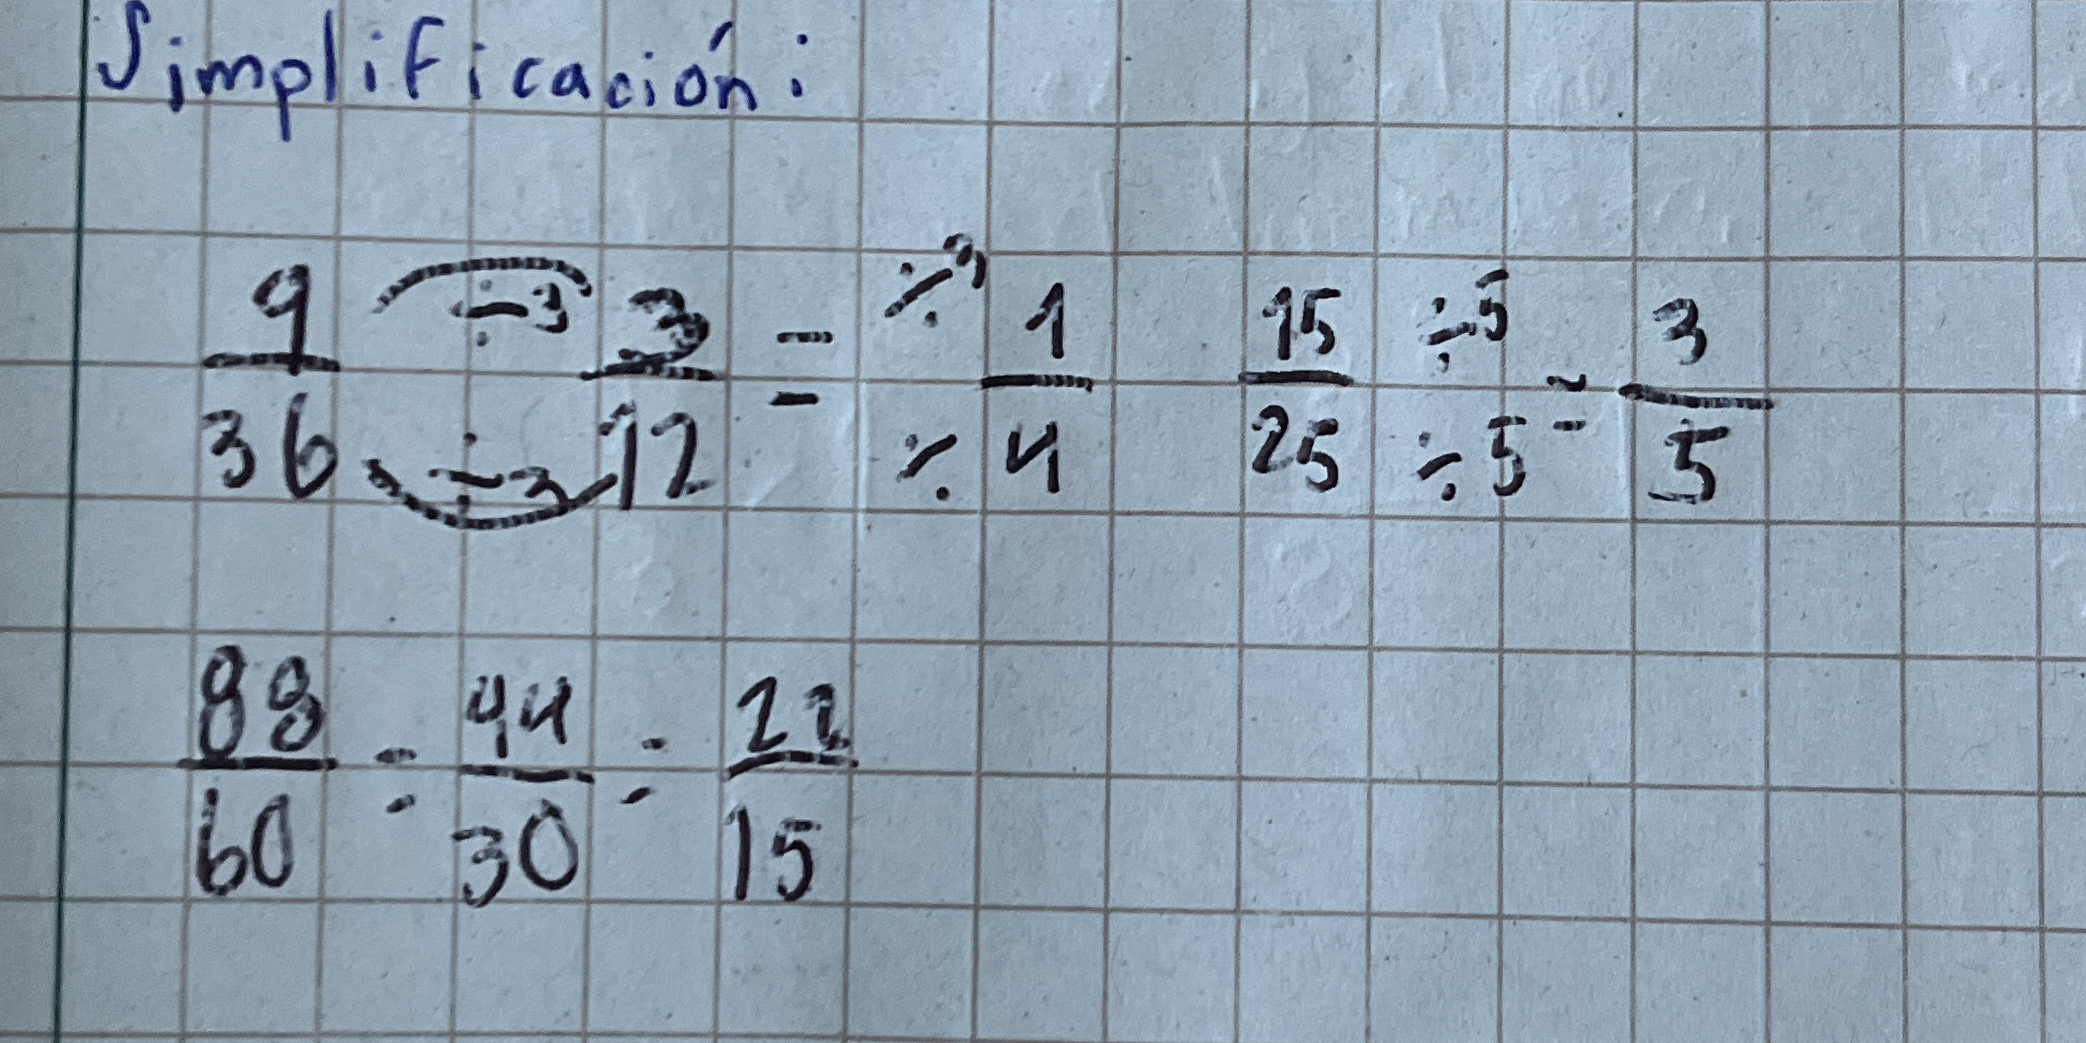 Simplificación:
9/36 ÷3 ÷3 3/12 = ÷3 ÷ 1/4 15/25 ÷5 ÷5 = 3/5
88/60 = 44/30 = 22/15